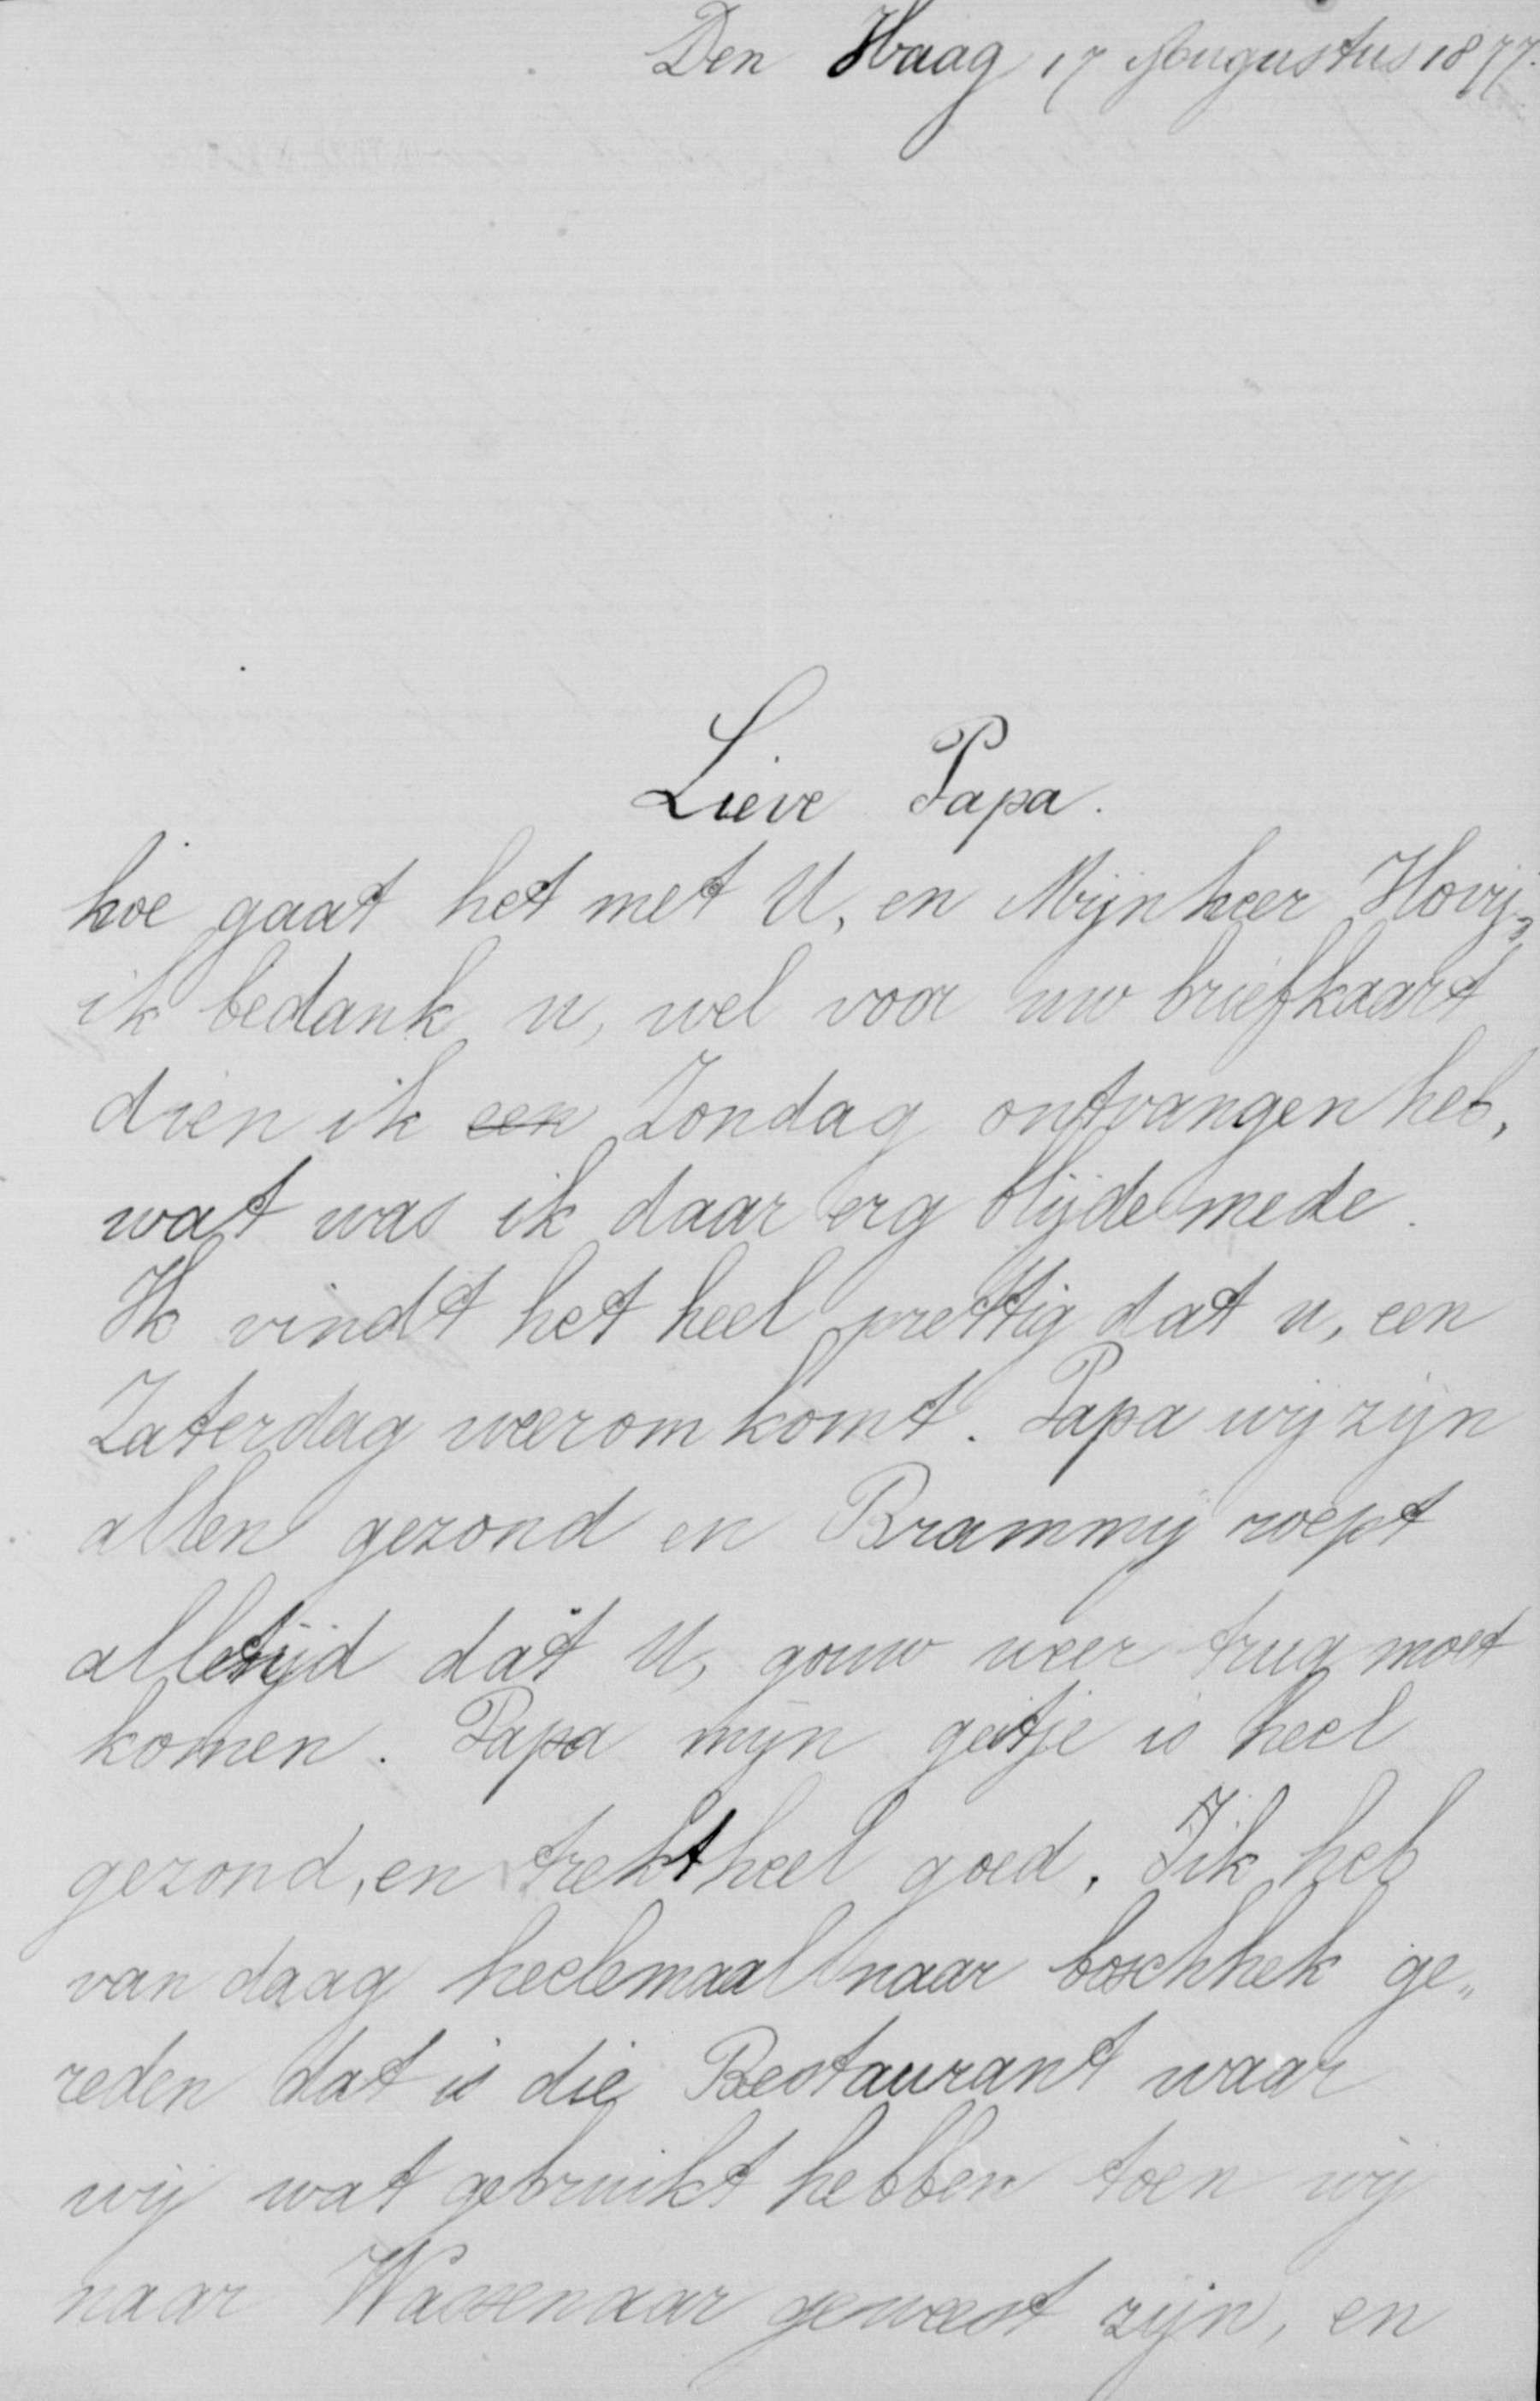 Den Haag 17 Augustus 1877.
Lieve Papa.
hoe gaat het met U, en Mijnheer Hovij,
ik bedank u, wel voor uw briefkaart
dien ik een Zondag ontvangen heb,
wat was ik daar erg blijde mede.
Ik vindt het heel prettig dat u, een
Zaterdag weerom komt. Papa wij zijn
allen gezond en Brammij roept
alletijd dat U, gouw weer trug moet
komen. Papa mijn geitje is heel
gezond, en trekt heel goed. Ik heb
van daag heelemaal naar boschhek ge„
reden dat is die Restaurant waar
wij wat gebruikt hebben toen wij
naar Wassenaar geweest zijn, en